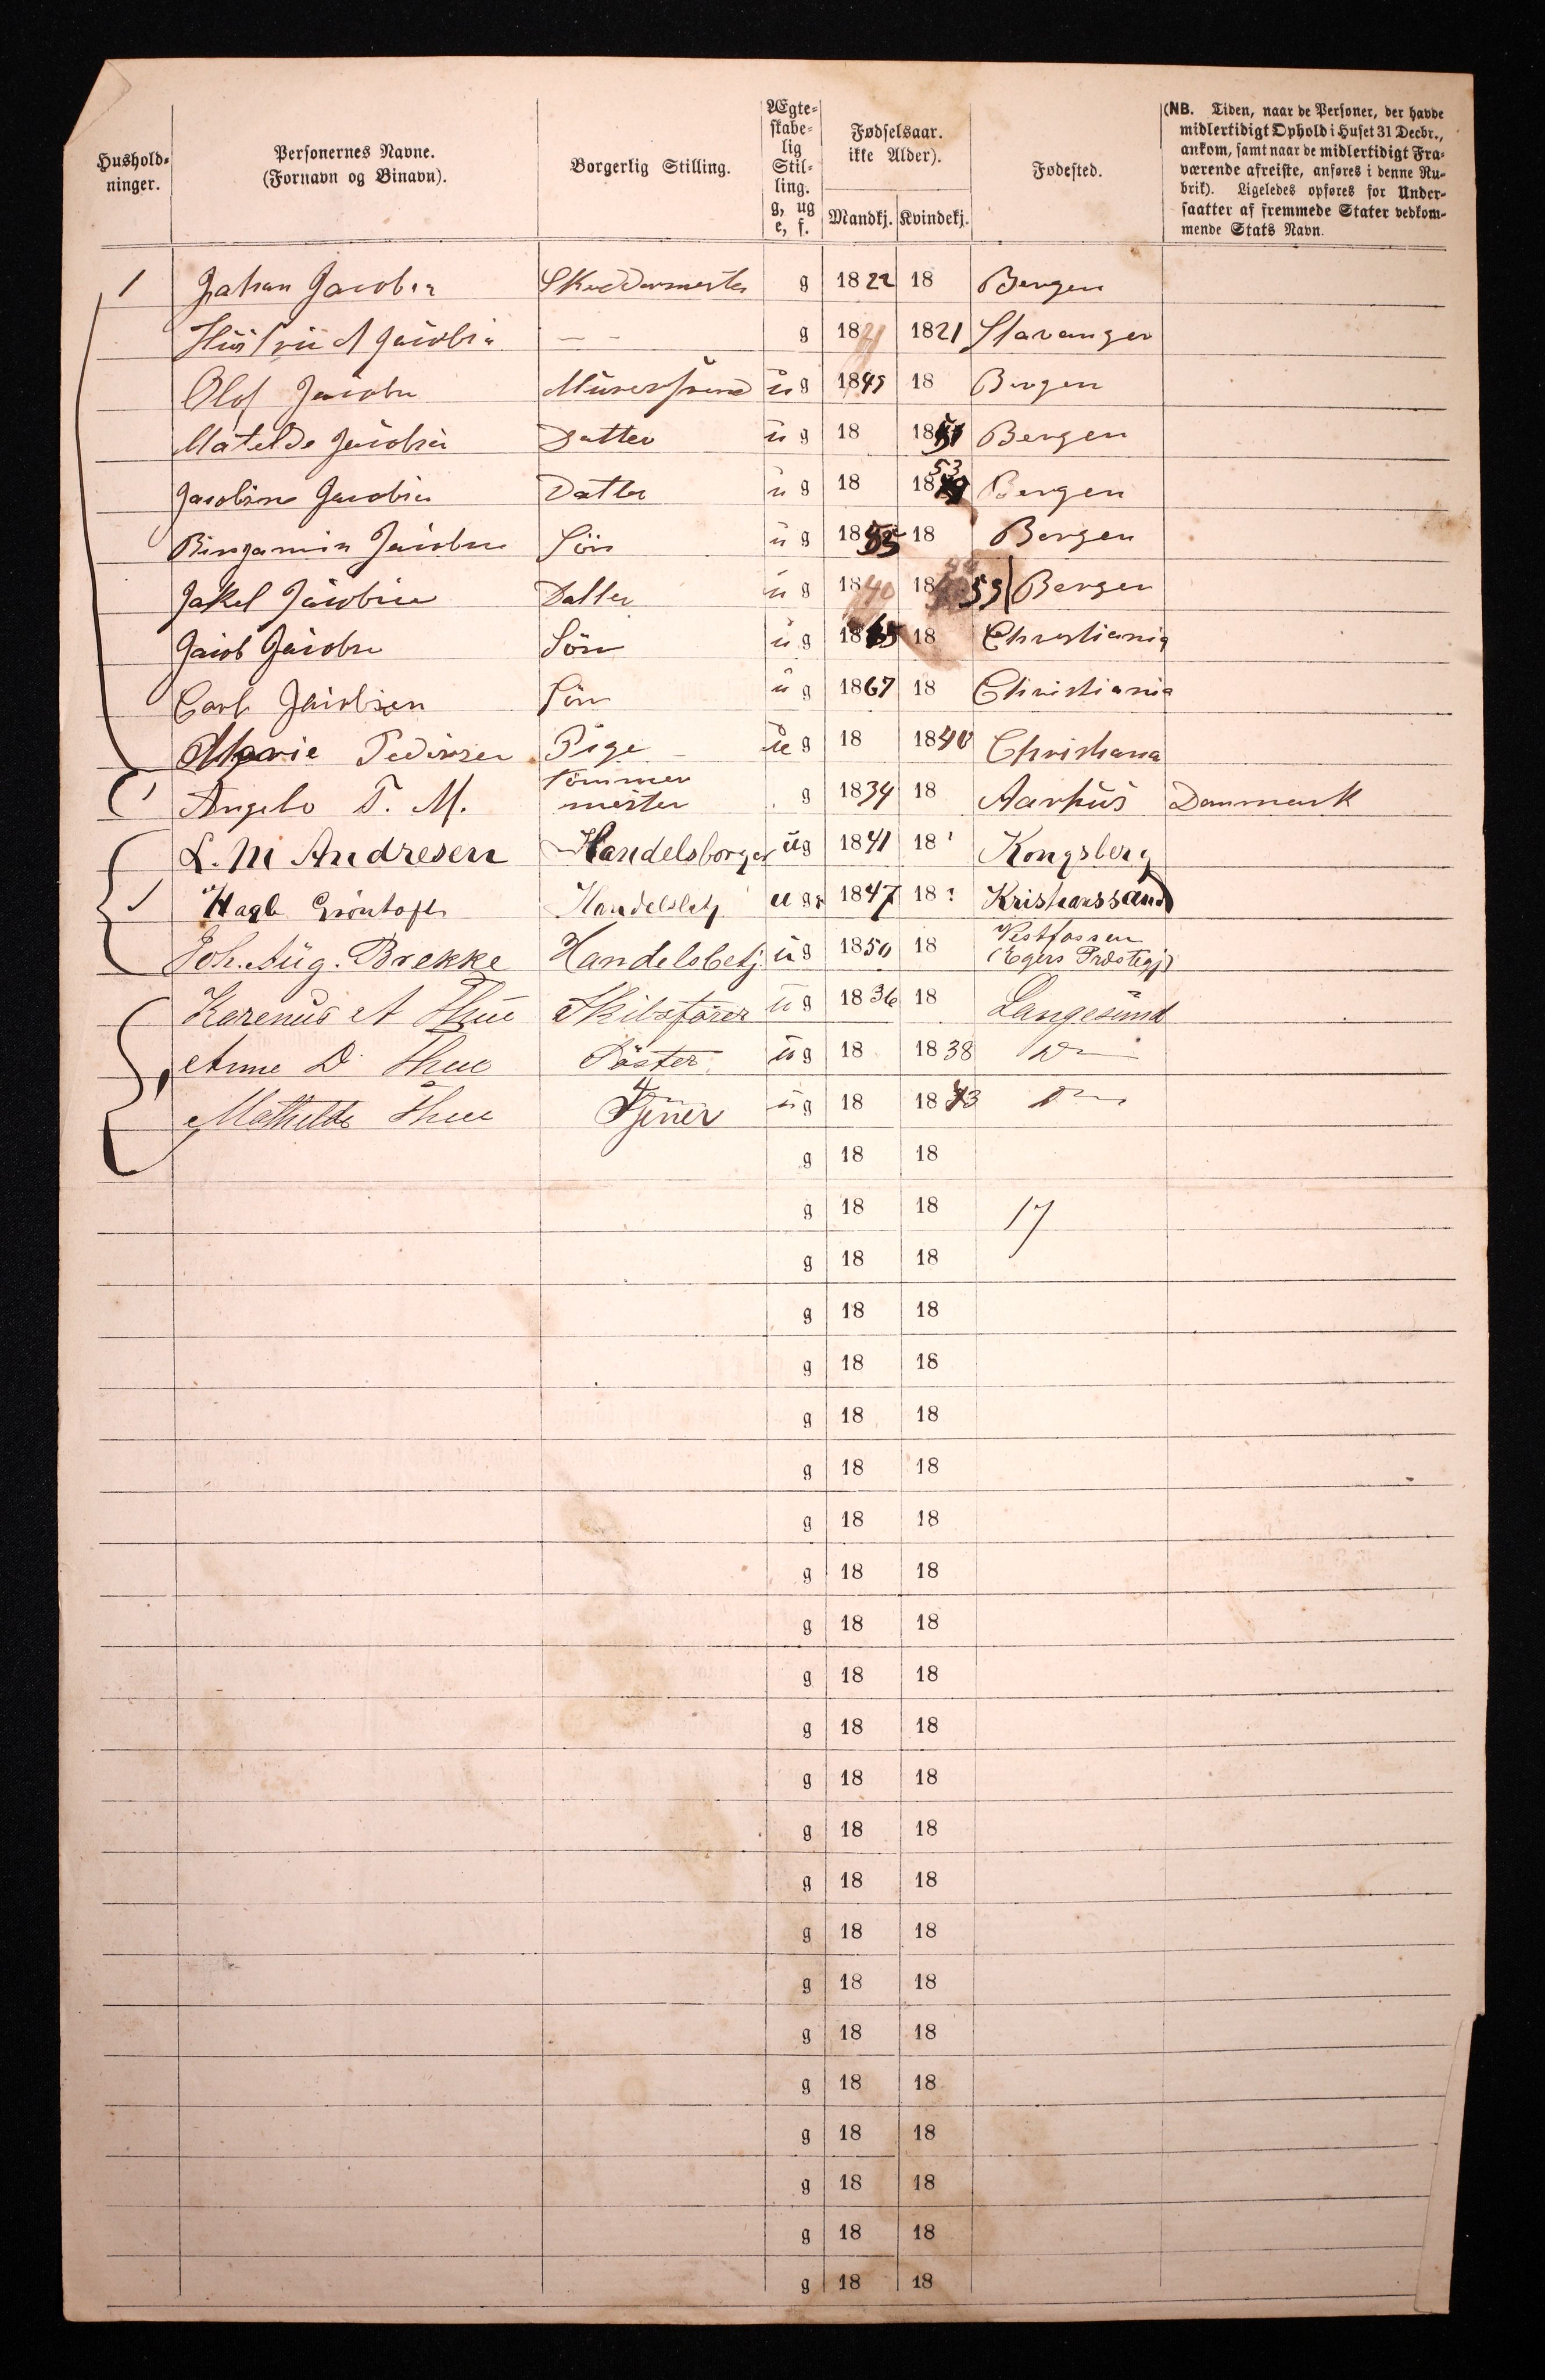 Hushold-
ninger.
Personernes Navne.
(Fornavn og Binavn).
Borgerlig Stilling.
Ægte-
skabe-
lig
Stil-
ling.
g, ug
e, f.
Fødselsaar.
ikke Alder).
Mandkj. Kvindekj.
Fødested.
(NB. Tiden, naar de Personer, der havde
midlertidigt Ophold i Huset 31 Decbr.,
ankom, samt naar de midlertidigt Fra-
værende afreiste, anføres i denne Ru-
brik). Ligeledes opføres for Under-
saatter af fremmede Stater vedkom-
mende Stats Navn.
1 Johan Jacobsen Skreddermester g 1822 18 Bergen
Hustru A Jacobsen — – g 1821 1821 Stavanger
Olof Jacobsen Murersvend ug 1849 18 Bergen
Matelde Jacobsen Datter ug 18 1851 Bergen
Jacobine Jacobsen Datter ug 18 1853 Bergen
Bingamin Jacobsen Sön ug 1855 18 Bergen
Jakel Jacobsen Datter ug 1840 18 59 Bergen
Jacob Jacobsen Sön ug 1865 18 Christiania
Carl Jacobsen Sön ug 1867 18 Christiania
Marie Pedersen Pige ug 18 1840 Christiana
1 Angelo T. M. Tömmer
mester g 1834 18 Aarhus Danmark
L. M Andresen Handelsborger ug 1841 18 Kongsberg
1 Hagb Gröntoft Handelsbetj ug 1847 18 Kristianssand
Joh. Aug. Brekke Handelsbetj ug 1850 18 Vestfossen
(Egers Præstegj)
Karenus A Thue Skibsförer ug 1836 18 Langesund
1 Anne D Thue Söster ug 18 1838 Do
Mathilde Thue Tjener ug 18 1843 Do
g 18 18
g 18 18 17
g 18 18
g 18 18
g 18 18
g 18 18
g 18 18
g 18 18
g 18 18
g 18 18
g 18 18
g 18 18
g 18 18
g 18 18
g 18 18
g 18 18
g 18 18
g 18 18
g 18 18
g 18 18
g 18 18
g 18 18
g 18 18